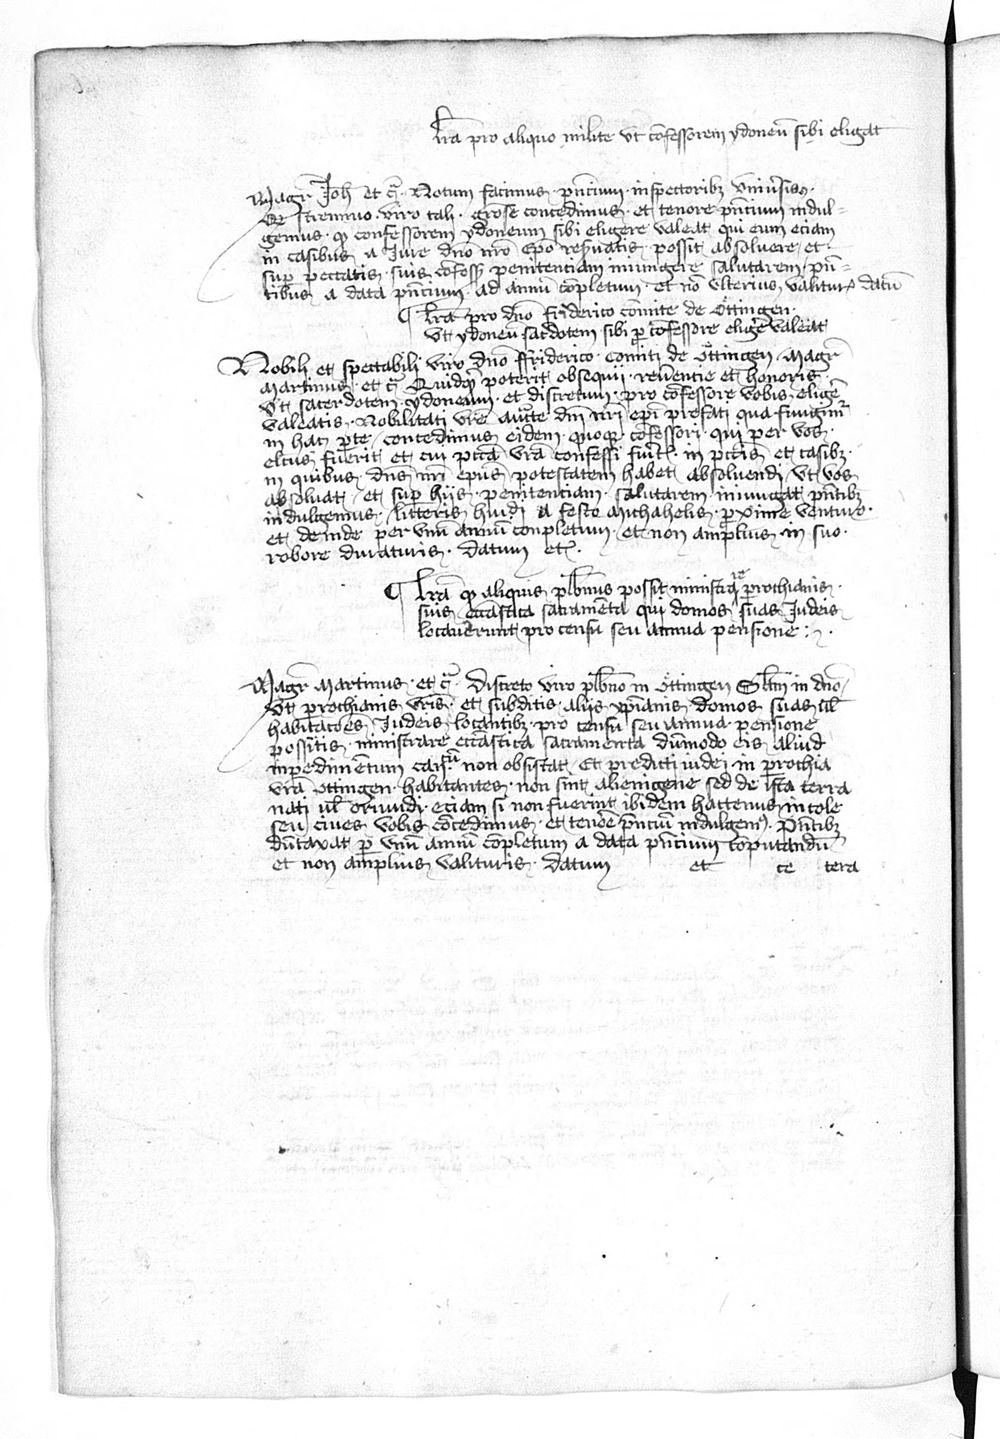 Lr̄a pro aliquo milite vt cōfessorem ydoneū sibi eligat
Mag̅r Joh̅ et c̄. Notum facimus p̅ncium inspectoribꝫ vniu̅sis
strennuo viro tali grose concedimus et tenore p̅ncium indul-
gemus ꝙ confessorem ydoneum sibi eligere valeat qui eum eciam
in casibus a Jure dn̅o nr̅o Ep̅o res̅uatis possit absoluere et
sup̱ peccatis suis cōfess̅ penitenciam iniungere salutarem p̅n-
tibus a data p̅ncium ad annū cōpletum et nō vlterius valitur̅ datū
¶ Lr̄a pro dn̅o friderico cōmite de Öttingen
Vt ydoneū sac̅dotem sibi ꝑ cōfessore elig̅e valeat
Nobili et spectabili viro dn̅o ffriderico comiti de Öttingen Mag̅r
Martinus et c̄ Quidq̅ poterit obsequii reu̅encie et honoris
Vt sacerdotem ydoneum et discretum pro cōfessore vobis elig̅e
valeatis Nobilitati vr̅e auc̅te dn̅i nr̅i ep̅i prefati qua fungim̅
in hac p̅te concedimus eidem quoqꝫ cōfessori qui per vos
elc̅us fuerit et cui pcc̅a vr̅a confessi fu̅it̅ in pcc̅is et casibꝫ
in quibus dn̅s nr̅ ep̅us potestatem habet absoluendi vt vos
absoluat et sup̱ hiis penitentiam salutarem iniungat p̅ntibꝫ
indulgemus litteris hui̅di a festo Michahelis ꝓxime venturo
et deinde per vnū annū conpletum et non amplius in suo
robore duraturis Datum et̅c
¶ Lr̄a ꝙ aliquis pl̅bnus possit ministrare ꝑrochianis
suis ecc̅astica sacramēta qui domos suas Judeis
locauerunt pro censu seu annua pensione
Mag̅r Martinus et c̄ Discreto viro pl̅bno in Öttingen Sl̅tm in dn̅o
Vt prochianis vr̅is et subditis aliis xp̅ianis domos suas u̅l
habitacōes Judeis locantibꝫ pro censu seu annua pensione
possitis ministrare ecc̅astica sacramenta dūmodo eis aliud
inpedimētum non obsistat Et predicti iudei in ꝑrochia
vr̅a Öttingen habitantes non sint alienigene sed de ista terra
nati u̅l oriundi eciam si non fuerint ibidem hactenus incole
seu ciues vobis cōcedimus et tenōe p̅nciū indulgem̅ P̅ntibꝫ
dūtaxat ꝑ vnū annū cōpletum a data p̅ncium cōputandū
et non amplius valituris Datum et ce tera